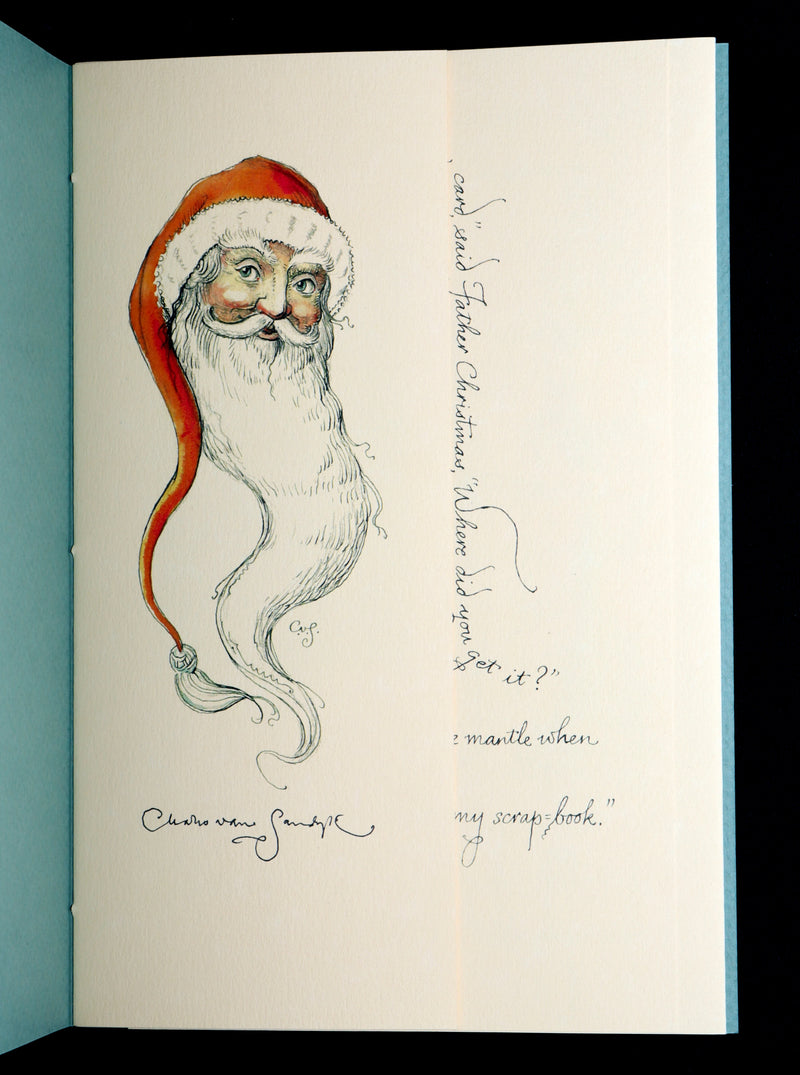 C.v.S.
Charles van Sandyk
card," said Father Christmas, "Where did you get it?"
mantle when
my scrap=book."